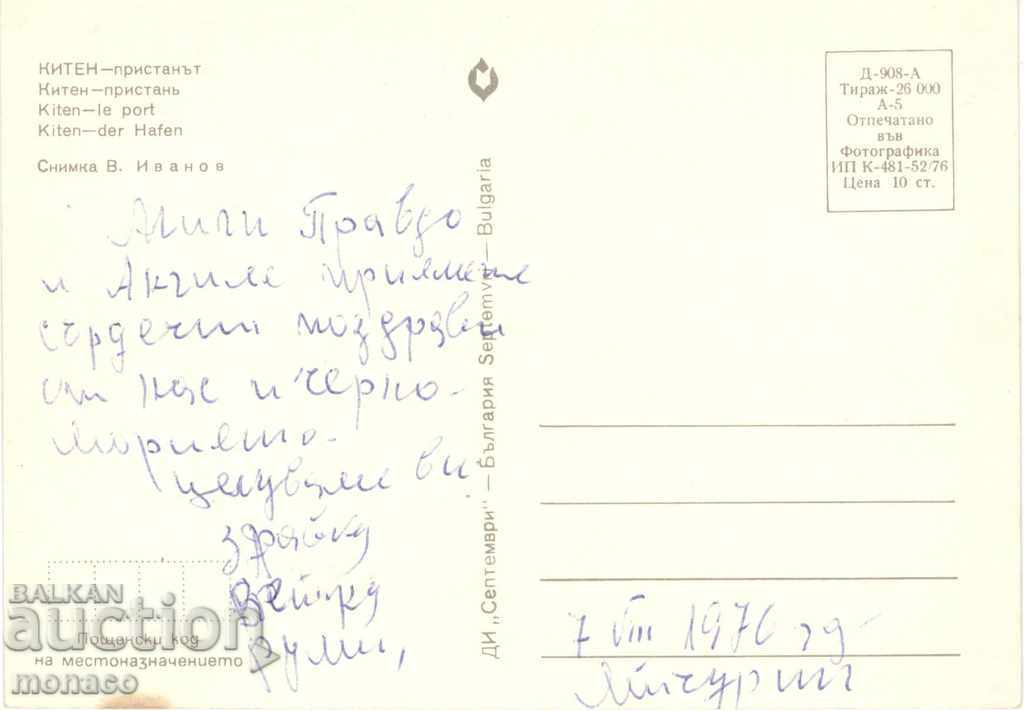 КИТЕН—пристанът
Китен—пристань
Kiten—le port
Kiten—der Hafen
Снимка В. Иванов
Мили Правдо
и Ахиле приемете
сърдечни поздрави
от нас и черно-
морието.
целуваме ви
Здравка
Румп,
BALKAN
auction
monaco
Пощенски код
на местоназначението
ДИ „Септември" — България Septemvri — Bulgaria
Д-908-А
Тираж-26 000
А-5
Отпечатано
във
Фотографика
ИП К-481-52/76
Цена 10 ст.
7 VIII 1976 год
Мичурин